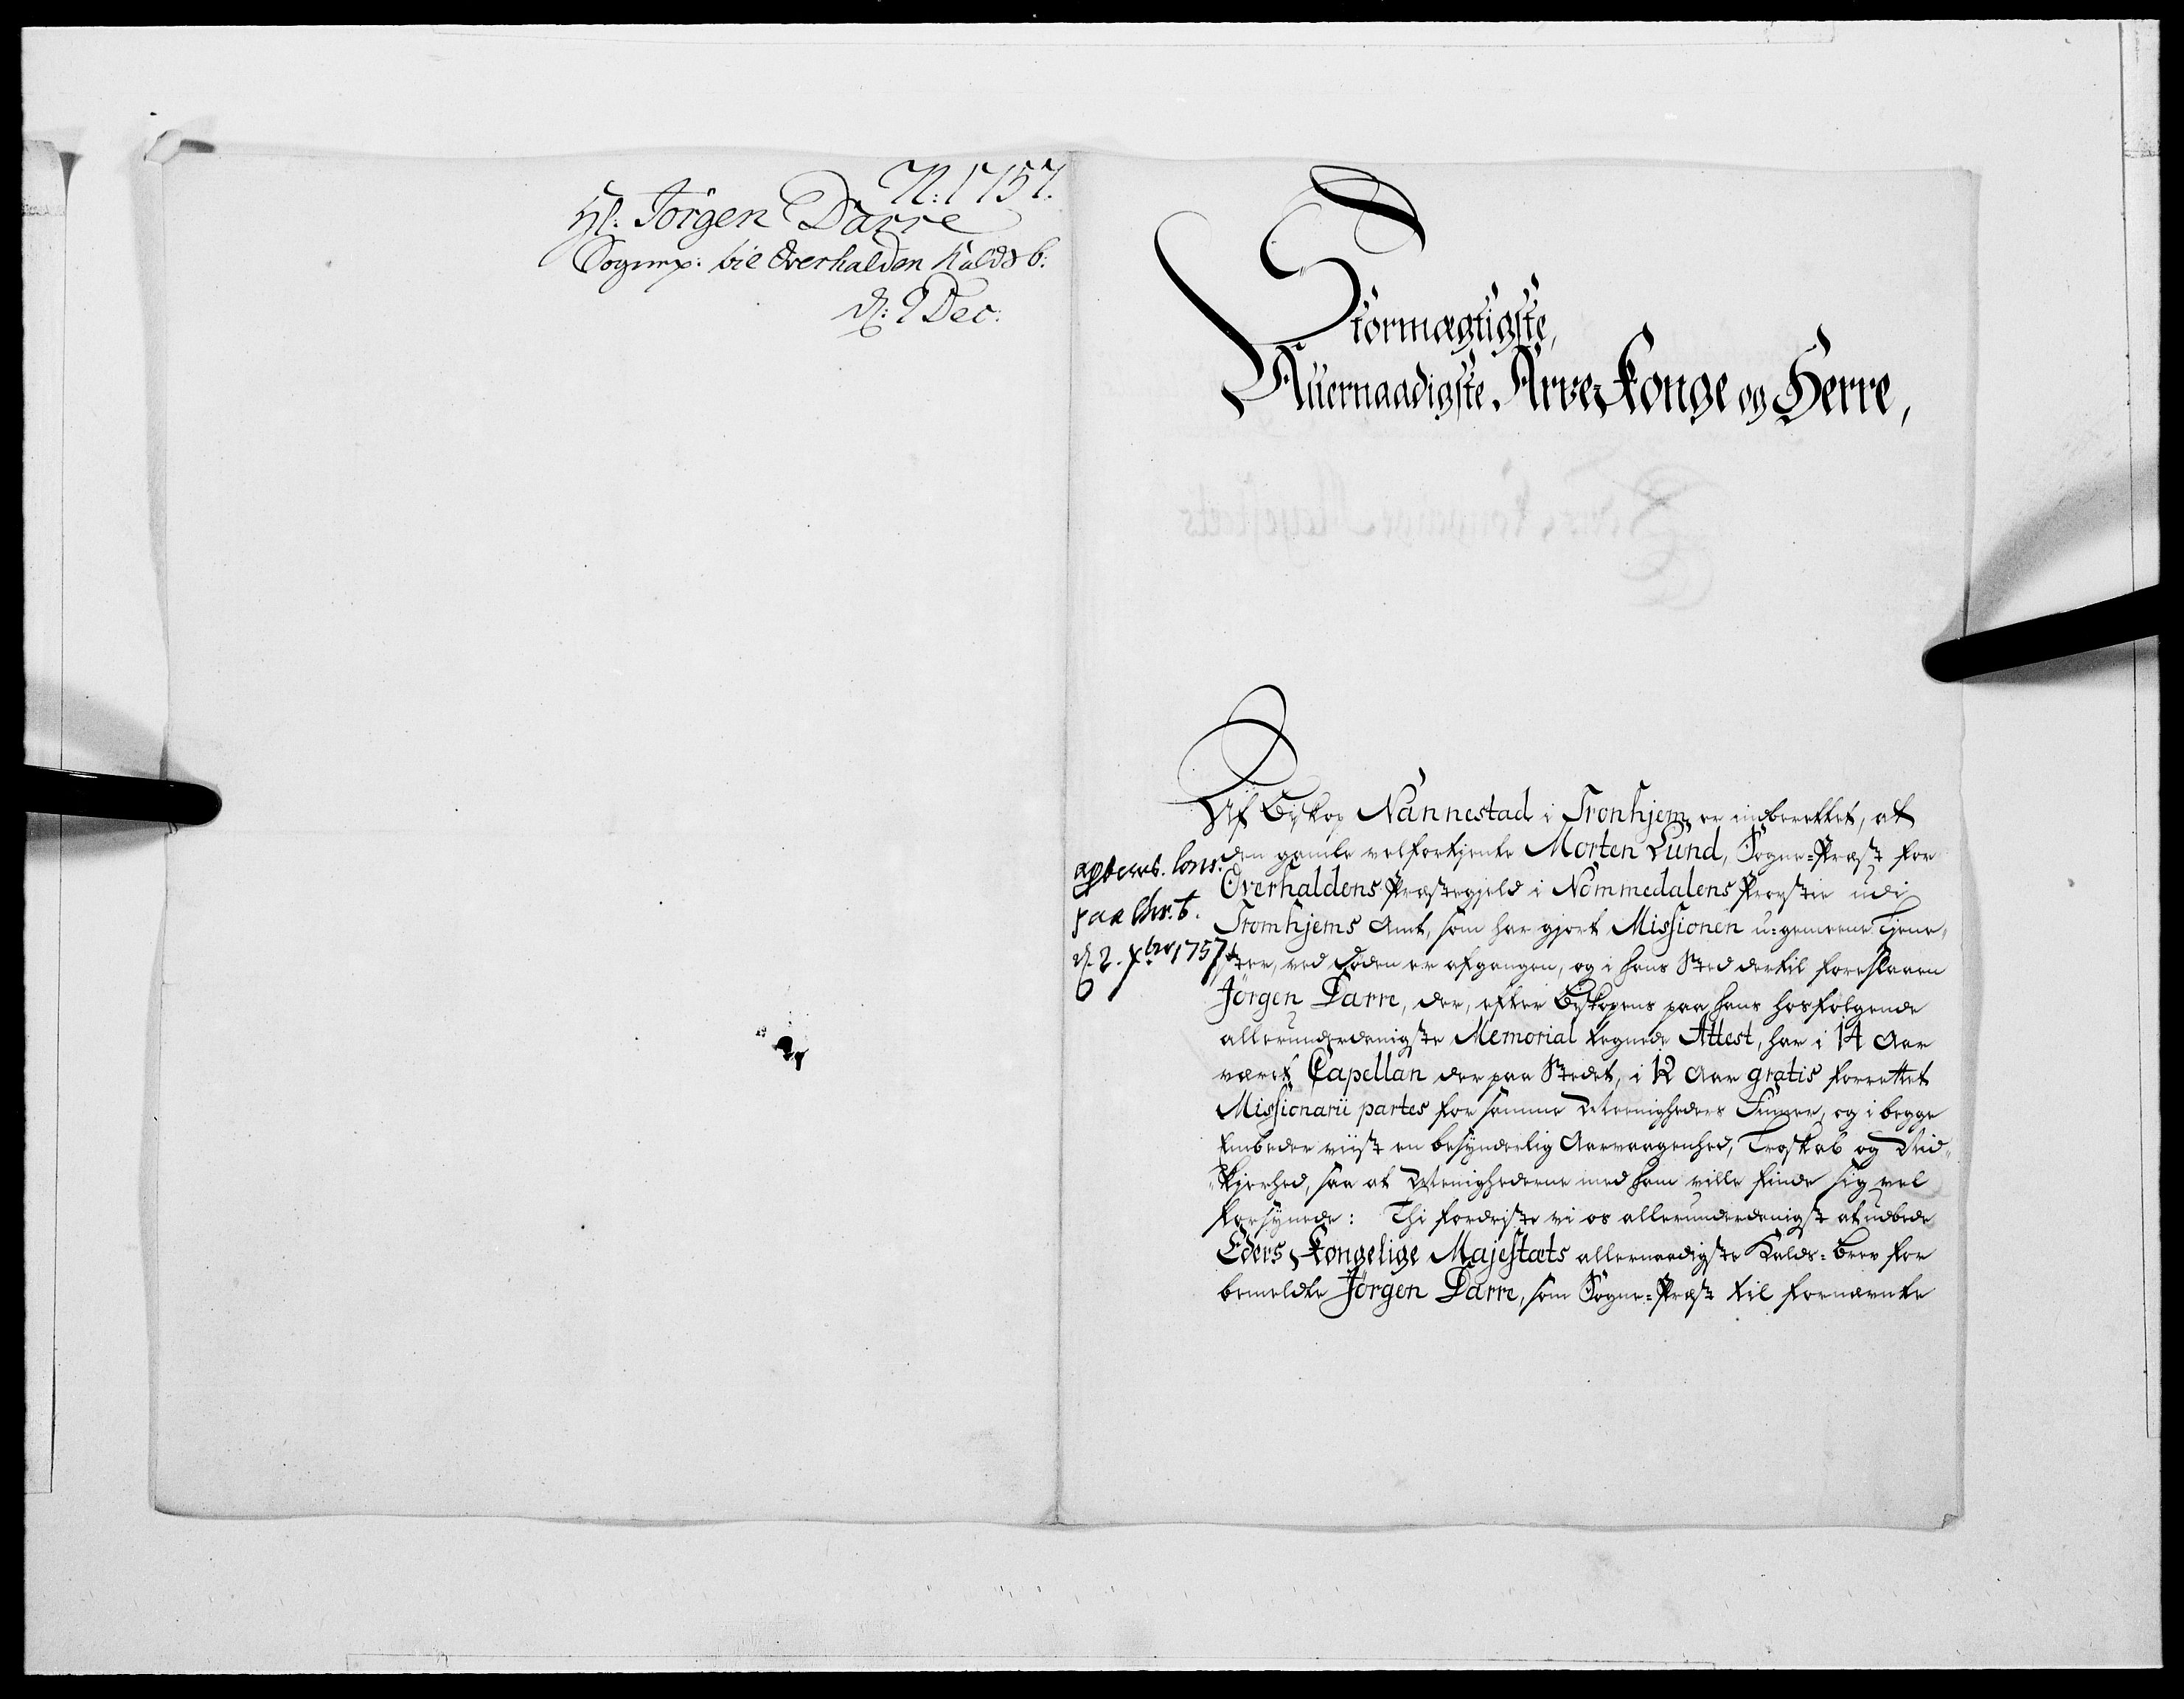 N: 1757.
Hr: Jörgen Darre
Sognepr: til Overhalden Kalds b:
d: 2 Dec:
Stormægtigste,
Allernaadigste Arve-Konge og Herre,
Af Biskop Nannestad i Tronhjem er indberettet, at
den gamle velfortjente Morten Lund, Sogne-Præst for
Overhaldens Præstegjeld i Nommedalens Provstie udi
Tromhjems Amt, som har gjort Missionen u-gemeene Tjene-
ster, ved Døden er afgangen, og i hans Sted dertil foreslaaen
Jörgen Darre, der, efter Biskopens paa hans hosfølgende
allerunderdanigste Memorial tegnede Attest, har i 14 Aar
været Capellan der paa Stedet, i 12 Aar gratis forrettet
Missionarii partes for samme Meenigheders Finner, og i begge
Embeder viist en besynderlig Aarvaagenhed, Troskab og Nid-
kjerhed, saa at Meenighederne med ham ville finde sig vel
forsynede: Thi fordriste vi os allerunderdanigst at udbede
Eders Kongelige Majestæts allernaadigste Kalds-Brev for
bemeldte Jörgen Darre, som Sogne-Præst til fornævnte
paa Chr.b.
d. 2. Xbr 1757